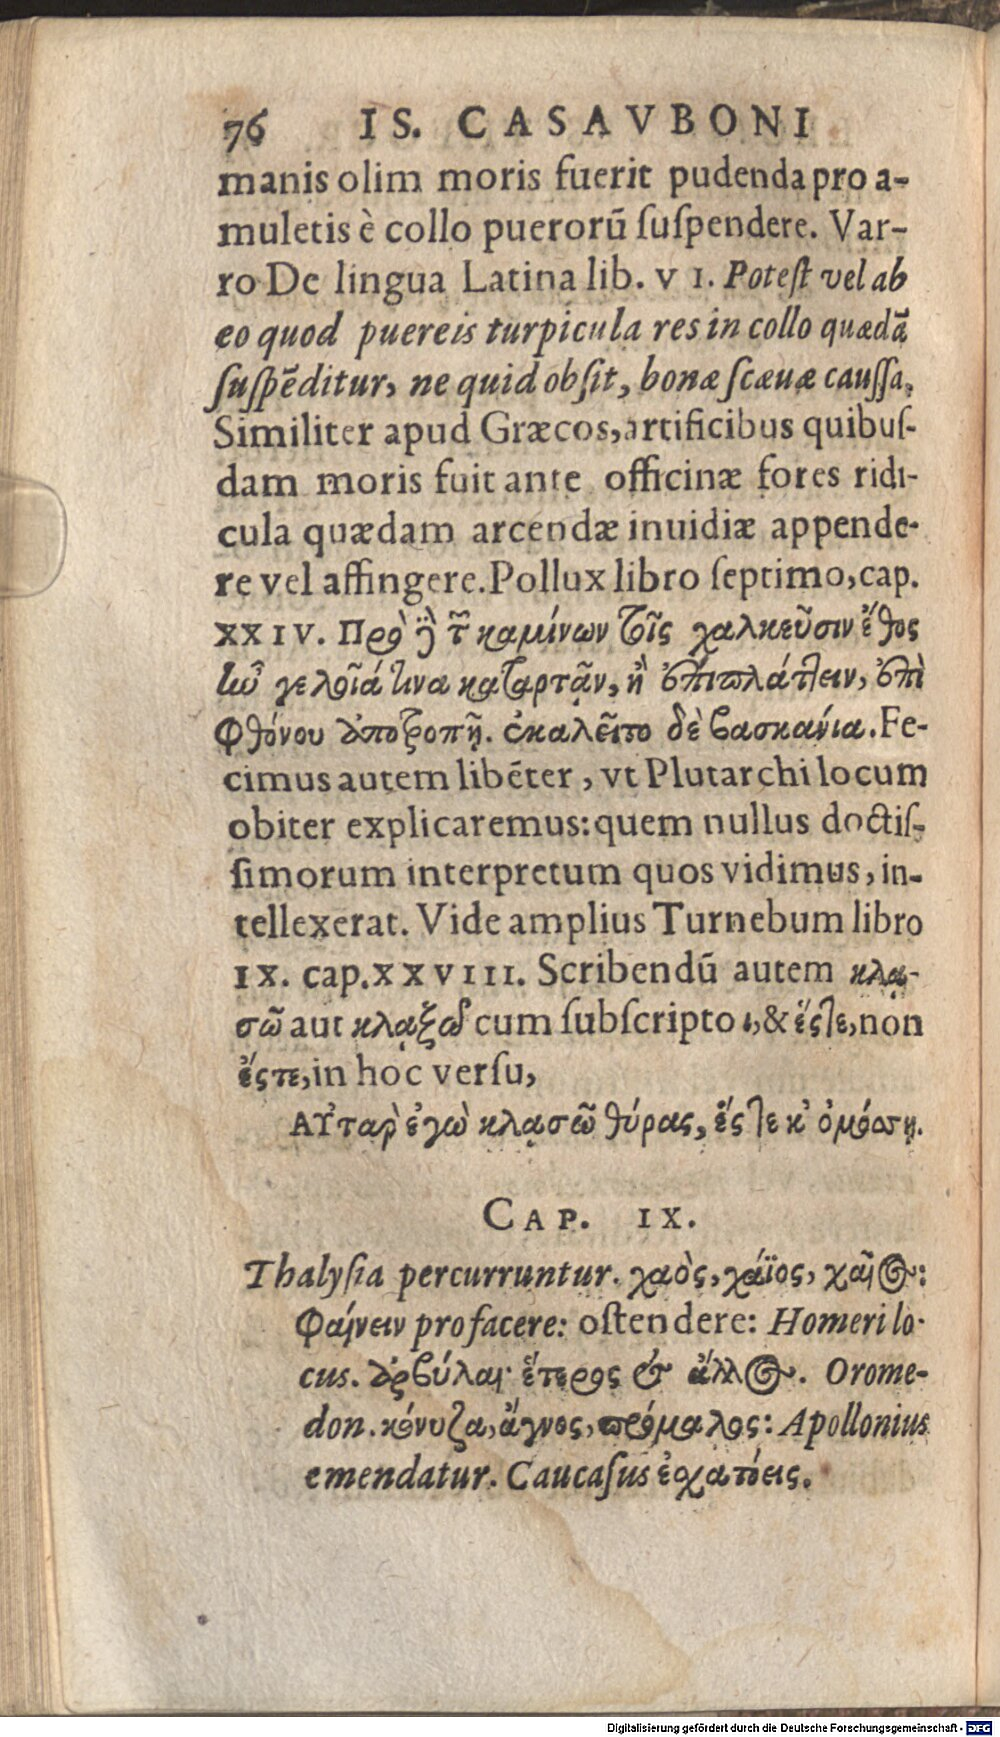 76 IS. CASAVBONI
manis olim moris fuerit pudenda pro a-
muletis è collo puerorū ſuſpendere. Var-
ro De lingua Latina lib. VI. Poteſt vel ab
eo quod puereis turpicula res in collo quædā
ſuſpēditur, ne quid obſit, bonæ ſcæuæ cauſſa.
Similiter apud Græcos, artificibus quibuſ-
dam moris fuit ante officinæ fores ridi-
cula quædam arcendæ inuidiæ appende-
re vel affingere. Pollux libro ſeptimo, cap.
XXIV. Πρὸ δὲ τῶν καμίνων τοῖς χαλκεῦσιν ἔθος
ἦν γελοῖά τινα καταρτᾷν, ἢ ἐπιπλάττειν, ἐπὶ
φθόνου ἀποτροπῇ. ἐκαλεῖτο δὲ βασκάνια. Fe-
cimus autem libēter, vt Plutarchi locum
obiter explicaremus: quem nullus doctiſ-
ſimorum interpretum quos vidimus, in-
tellexerat. Vide amplius Turnebum libro
IX. cap. XXVIII. Scribendū autem κλᾳ-
σῶ aut κλᾳξῶ cum ſubſcripto ι, & ἔστε, non
ἔς τε, in hoc verſu,
Αὐτὰρ ἐγὼ κλᾳσῶ θύρας, ἔστε κ' ὀμόσῃ.
CAP. IX.
Thalyſia percurruntur. χαὸς, χάϊος, χαῖος:
φαίνειν pro facere: oſtendere: Homeri lo-
cus. ἀρβύλαι· ἕτερος & ἄλλος. Orome-
don. κόνυζα, ἄγνος, πρόμαλος: Apollonius
emendatur. Caucaſus ἐσχατόεις.
Digitalisierung gefördert durch die Deutsche Forschungsgemeinschaft - DFG